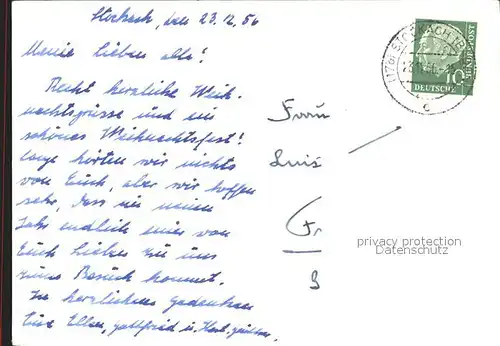 Stockach, den 23.12.56
Meine lieben alle!
Recht herzliche Weih-
nachtsgrüsse und ein
schönes Weihnachtsfest!
lange hörten wir nichts
von Euch, aber wir hoffen
sehr, dass im neuen
Jahr endlich einer von
Euch Lieben zu uns
zum Besuch kommt.
In herzlichem Gedenken
Eure Ellen, Gottfried u. Karl
Frau
Luis
Fr
(17b) STOCKACH (B
DEUTSCHE BUNDESPOST
10
c
privacy protection
Datenschutz